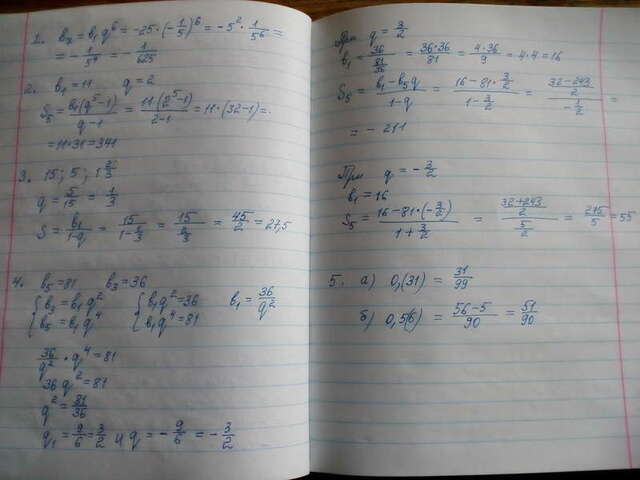 1. b₇ = b₁q⁶ = -25·(-1/5)⁶ = -5²·1/5⁶ =
= 1/5⁴ = 1/625
2. b₁ = 11 q = 2
S₅ = b₁(q⁵-1)/q-1 = 11(2⁵-1)/2-1 = 11·(32-1) =
= 11·31 = 341
3. 15; 5; 1 2/3
q = 5/15 = 1/3
S = b₁/1-q = 15/1-1/3 = 15/2/3 = 45/2 = 27,5
4. b₅ = 81 b₃ = 36
{b₃ = b₁q² {b₁q² = 36 b₁ = 36/q²
{b₅ = b₁q⁴ {b₁q⁴ = 81
36/q² · q⁴ = 81
36q² = 81
q² = 81/36
q₁ = 9/6 = 3/2 и q = -9/6 = -3/2
При q = 3/2
b₁ = 36/81/36 = 36·36/81 = 4·36/9 = 4·4 = 16
S₅ = b₁-b₅q/1-q = 16-81·3/2/1-3/2 = 32-243/2/-1/2 =
= -211
При q = -3/2
b₁ = 16
S₅ = 16-81·(-3/2)/1+3/2 = 32+243/2/5/2 = 275/5 = 55
5. а) 0,(31) = 31/99
б) 0,5(6) = 56-5/90 = 51/90